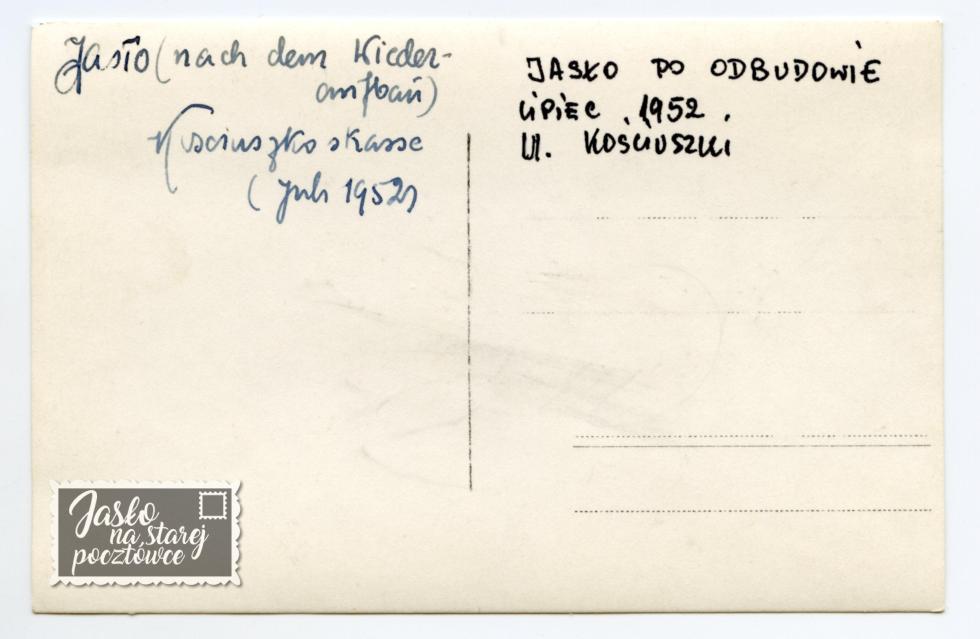 Jasło (nach dem Wieder-
aufbau)
Kosciuszkostrasse
(Juli 1952)
JASŁO PO ODBUDOWIE
LIPIEC . 1952 .
Ul. KOSCIUSZKI
Jasło
na starej
pocztówce